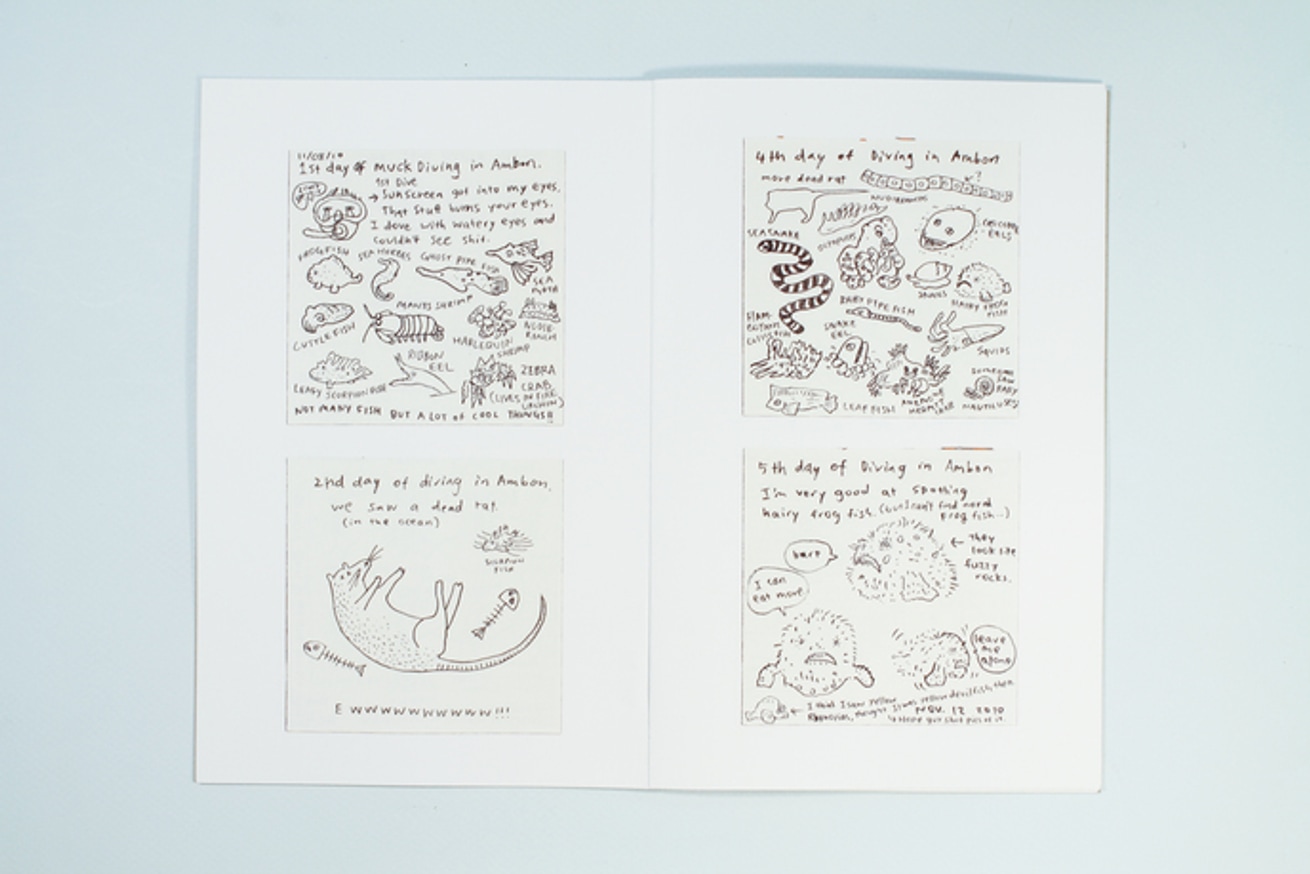 11/08/10
1st day of muck Diving in Ambon.
1st Dive
→ Sunscreen got into my eyes.
That stuff burns your eyes.
I dove with watery eyes and
couldn't see shit.
FROGFISH
SEA HORSES
GHOST PIPE FISH
SEA MOTH
CUTTLEFISH
MANTIS SHRIMP
HARLEQUIN SHRIMP
NUDIBRANCH
LEAFY SCORPIONFISH
RIBBON EEL
ZEBRA CRAB
(LIVES IN FIRE URCHIN)
NOT MANY FISH BUT A LOT OF COOL THINGS!!
2nd day of diving in Ambon.
we saw a dead rat.
(in the ocean)
SCORPION FISH
EWWWWWWWWWW!!!
4th day of Diving in Ambon
more dead rat
?
NUDIBRANCHS
SEASNAKE
OCTOPUSES
CROCODILE EELS
SNAILS
HAIRY FROG FISH
BABY PIPE FISH
FLAMBOYANT CUTTLEFISH
SNAKE EEL
SQUIDS
LEAF FISH
ANEMONE HERMIT CRAB
SOMEONE SAW BABY NAUTILUSES
5th day of Diving in Ambon
I'm very good at spotting
hairy frog fish. (but I can't find normal
frog fish...)
← They
look like
fuzzy
rocks.
barf
I can
eat more
leave
me
alone
← I think I saw yellow
thought it was yellow devilfish then
NOV. 12 2010